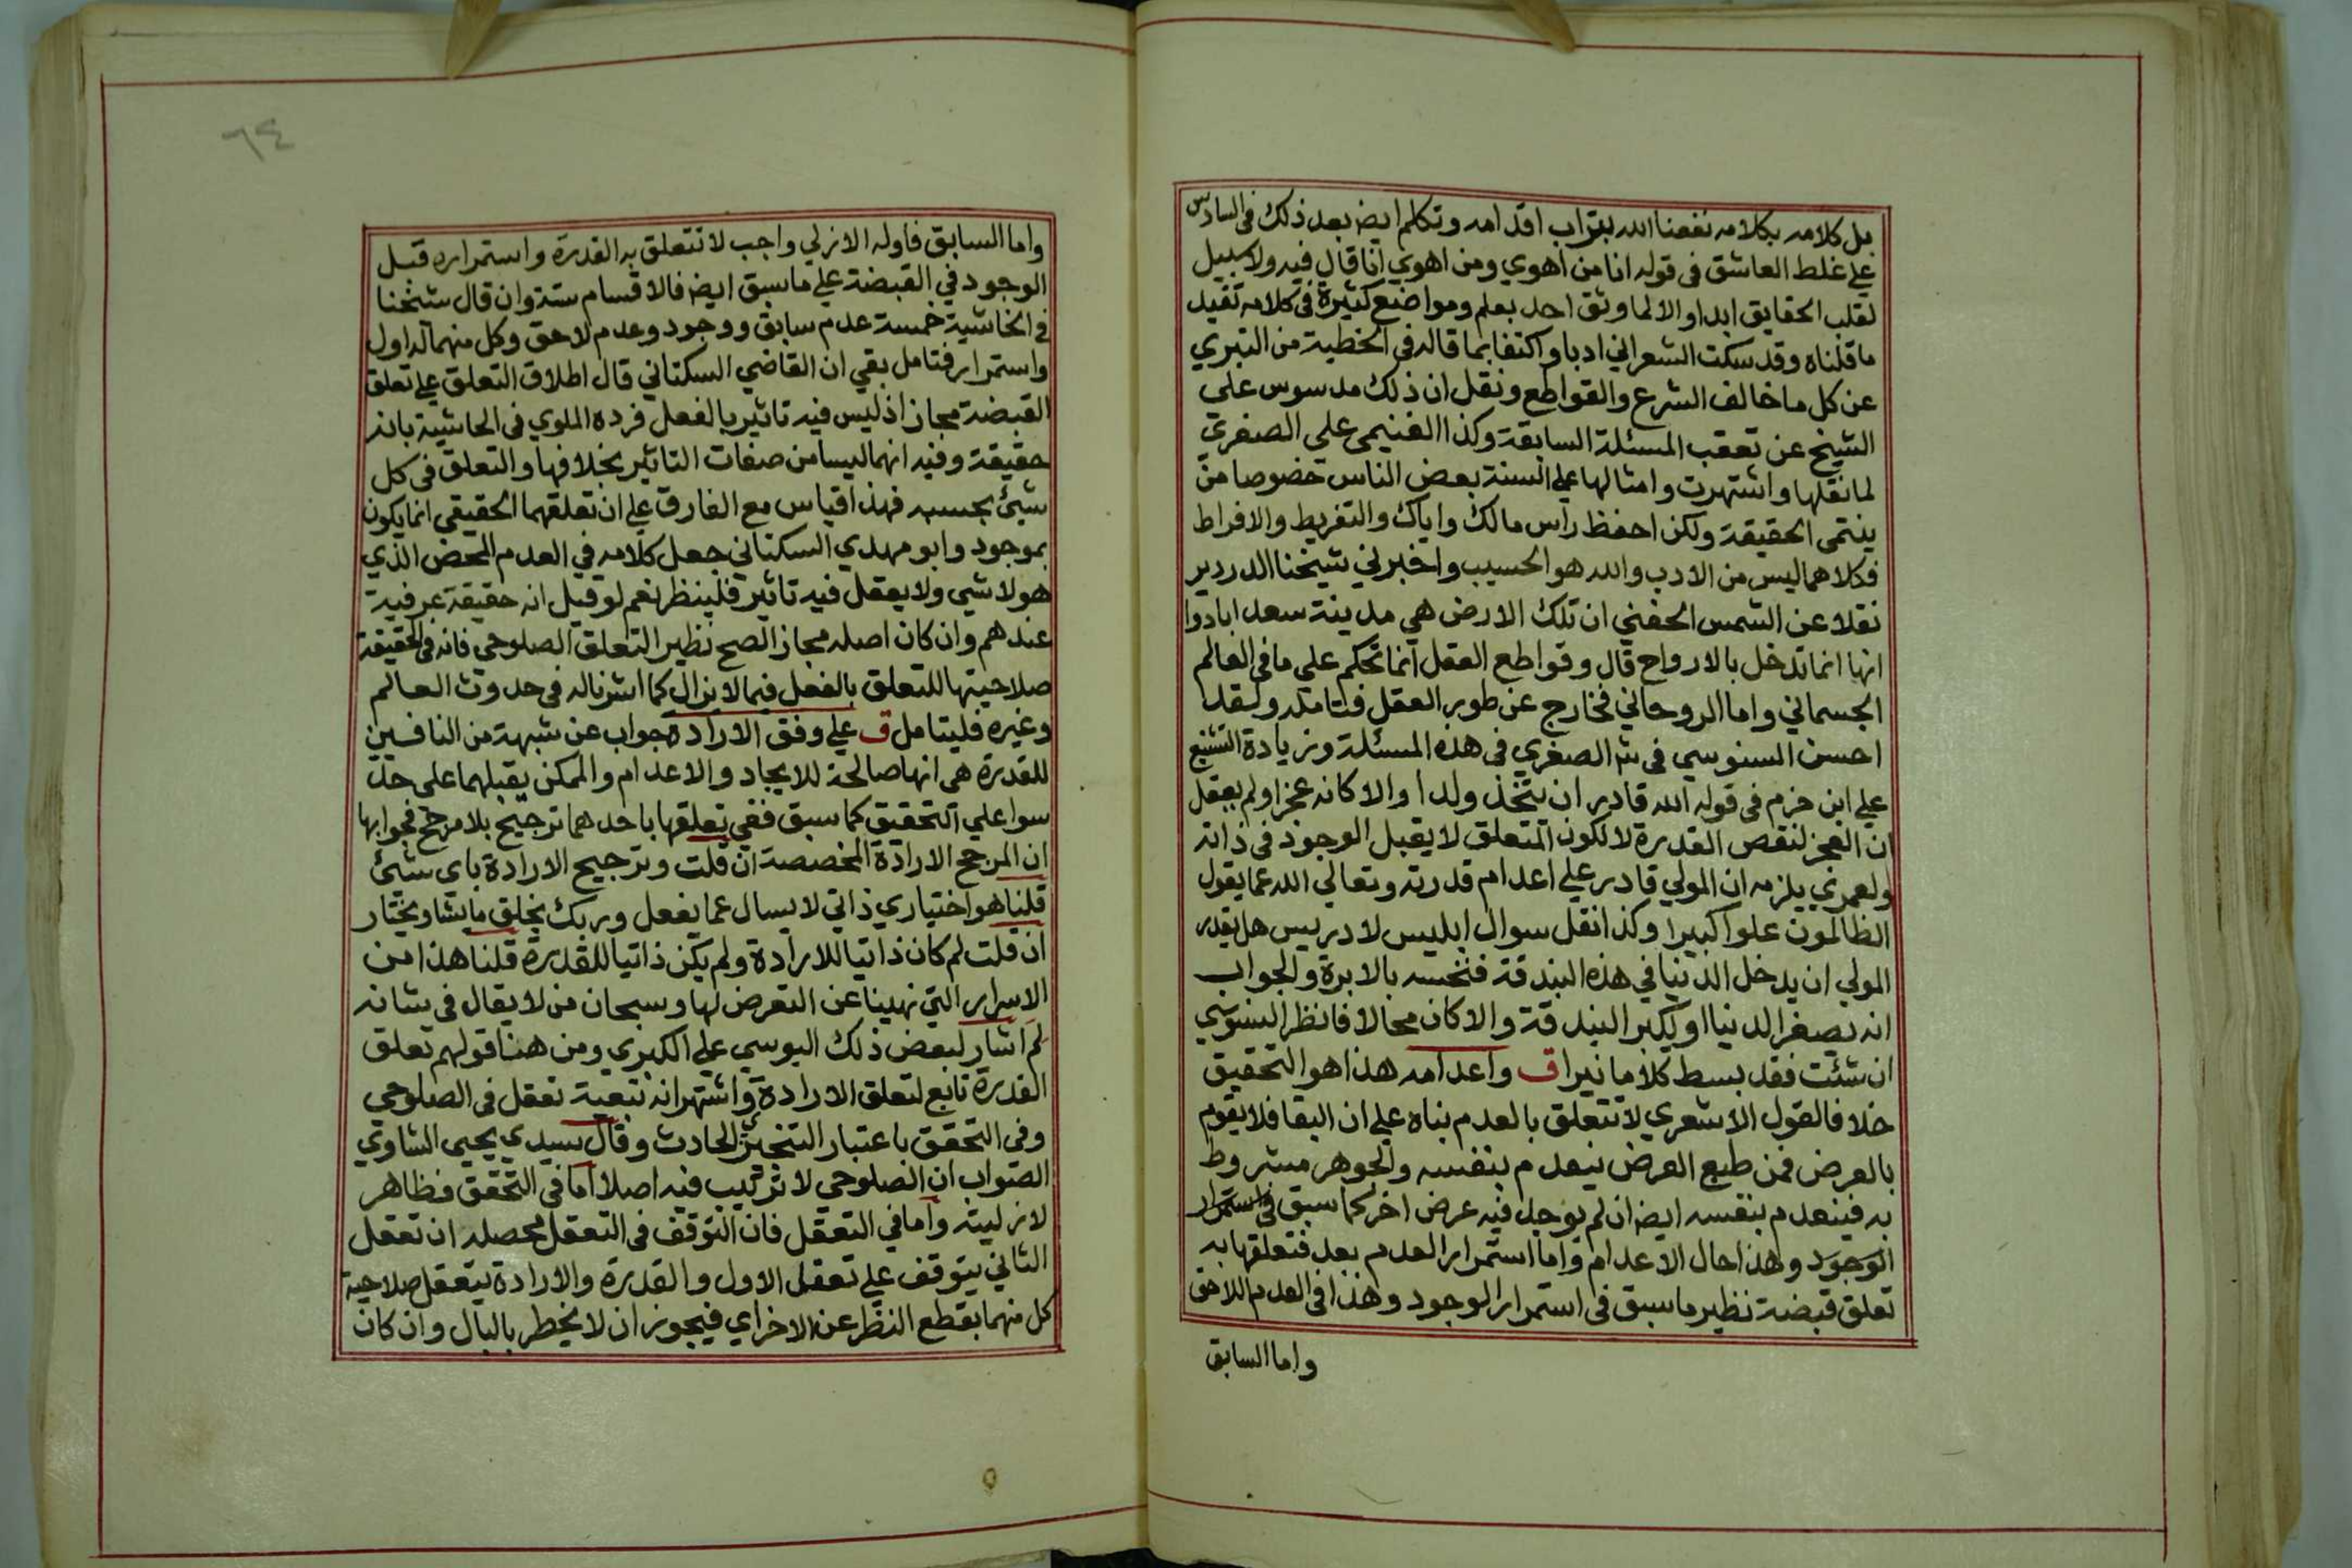 بل كلامه بكلامه نفعنا الله بتراب اقدامه وتكلم ايض بعد ذلك في السادس
على غلط العاشق في قوله انا من اهوي ومن اهوي انا قال فيه ولا سبيل
لقلب الحقايق ابدا والا لما وثق احد بعلم ومواضع كثيرة في كلامه تفيد
ما قلناه وقد سكت الشعراني ادبا واكتفا بما قاله في الخطبة من التبري
عن كل ما خالف الشرع والقواطع ونقل ان ذلك مدسوس على
الشيخ عن تعقب المسئلة السابقة وكذا الغنيمي على الصغري
لما نقلها واشتهرت وامثالها على السنة بعض الناس خصوصا من
ينتمي الحقيقة ولكن احفظ راس مالك واياك والتفريط والافراط
فكلاهما ليس من الادب والله هو الحسيب واخبرني شيخنا الدردير
نقلا عن الشمس الحفني ان تلك الارض هي مدينة سعد ابادوا
انها انما تدخل بالارواح قال وقواطع العقل انما تحكم على ما في العالم
الجسماني واما الروحاني فخارج عن طور العقل فتامله ولقد
احسن السنوسي في ش الصغري في هذه المسئلة وزيادة التشنيع
علي ابن حزم في قوله الله قادر ان يتخذ ولدا والا كان عجزا ولم يعقل
ان العجز لنقص القدرة لا لكون المتعلق لا يقبل الوجود في ذاته
ولعمري يلزمه ان المولي قادر علي اعدام قدرته وتعالي الله عما يقول
الظالمون علوا كبيرا وكذا نقل سوال ابليس لادريس هل يقدر
المولي ان يدخل الدنيا في هذه البندقة فنخسه بالابرة والجواب
انه يصغر الدنيا او يكبر البندقة والا كان محالا فانظر السنوسي
ان شئت فقد بسط كلاما نيرا ق واعدامه هذا هو التحقيق
خلافا لقول الاشعري لا تتعلق بالعدم بناه علي ان البقا فلا يقوم
بالعرض فمن طبع العرض ينعدم بنفسه والجوهر مشروط
به فينعدم بنفسه ايض ان لم يوجد فيه عرض اخر كما سبق في استمرار
الوجود وهذا حال الاعدام واما استمرار العدم بعد فتعلقها به
تعلق قبضة نظير ما سبق في استمرار الوجود وهذا في العدم اللاحق
واما السابق
٦٤
واما السابق فاوله الازلي واجب لا تتعلق به القدرة واستمراره قبل
الوجود في القبضة علي ما سبق ايض فالاقسام ستة وان قال شيخنا
في الحاشية خمسة عدم سابق ووجود وعدم لاحق وكل منهما له اول
واستمرار فتامل بقي ان القاضي السكتاني قال اطلاق التعلق علي تعلق
القبضة مجاز اذ ليس فيه تاثير بالفعل فرده الملوي في الحاشية بانه
حقيقة وفيه انهما ليسا من صفات التاثير بخلافها والتعلق في كل
شيئ بحسبه فهذا قياس مع الفارق علي ان تعلقهما الحقيقي انما يكون
بموجود وابو مهدي السكتاني جعل كلامه في العدم المحض الذي
هو لا شي ولا يعقل فيه تاثير فلينظر نعم لو قيل انه حقيقة عرفية
عندهم وان كان اصله مجاز الصح نظير التعلق الصلوحي فانه في الحقيقة
صلاحيتها للتعلق بالفعل فيما لا يزال كما اشرنا له في حدوث العالم
وغيره فليتامل ق علي وفق الارادة جواب عن شبهة من النافين
للقدرة هي انها صالحة للايجاد والاعدام والممكن يقبلهما على حد
سوا علي التحقيق كما سبق ففي تعلقها باحدهما ترجيح بلا مرجح فجوابها
ان المرجح الارادة المخصصة ان قلت وترجيح الارادة باي شيئ
قلنا هو اختياري ذاتي لا يسال عما يفعل وربك يخلق ما يشا ويختار
ان قلت لم كان ذاتيا للارادة ولم يكن ذاتيا للقدرة قلنا هذا من
الاسرار التي نهينا عن التعرض لها وسبحان من لا يقال في شانه
لم اشار لبعض ذلك اليوسي علي الكبري ومن هنا قولهم تعلق
القدرة تابع لتعلق الارادة واشتهر انه تبعية تعقل في الصلوحي
وفي التحقق باعتبار التنجيز الحادث وقال سيدي يحيي الشاوي
الصواب ان الصلوحي لا ترتيب فيه اصلا اما في التحقق فظاهر
لازليته واما في التعقل فان التوقف في التعقل محصله ان تعقل
الثاني يتوقف علي تعقل الاول والقدرة والارادة يتعقل صلاحية
كل منهما بقطع النظر عن الاخر اي فيجوز ان لا يخطر بالبال وان كان